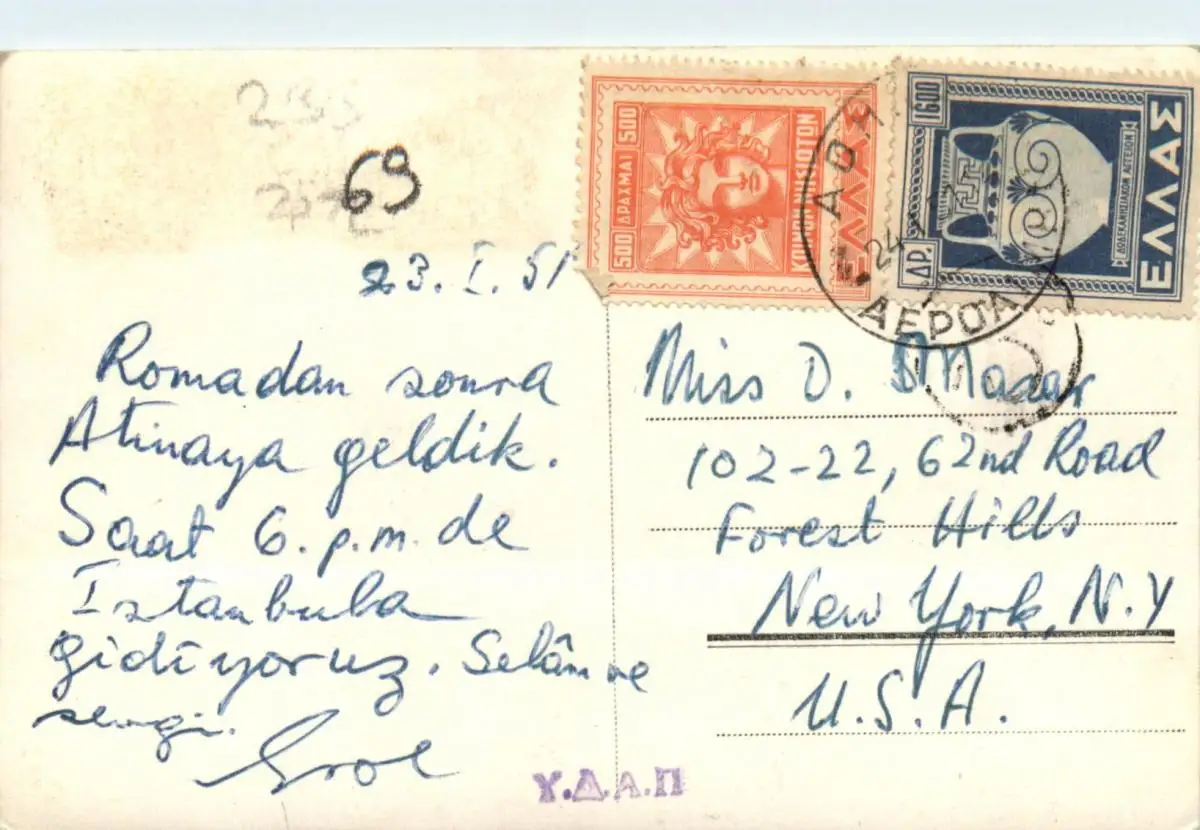 69
23.I.51
Romadan sonra
Atinaya geldik.
Saat 6.p.m.de
Istanbula
gidiyoruz. Selâm ve
sevgi.
Erol
500 ΔΡΑΧΜΑΙ 500
ΚΟΙΝΟΝ ΝΗΣΙΩΤΩΝ
ΕΛΛΑΣ
1600
ΔΡ.
ΔΩΔΕΚΑΝΗΣΙΑΚΟΝ ΑΓΓΕΙΟΝ
ΕΛΛΑΣ
ΑΕΡΟΛ
Miss D.
102-22, 62nd Road
Forest Hills
New York, N.Y
U.S.A.
Υ.Δ.Α.Π